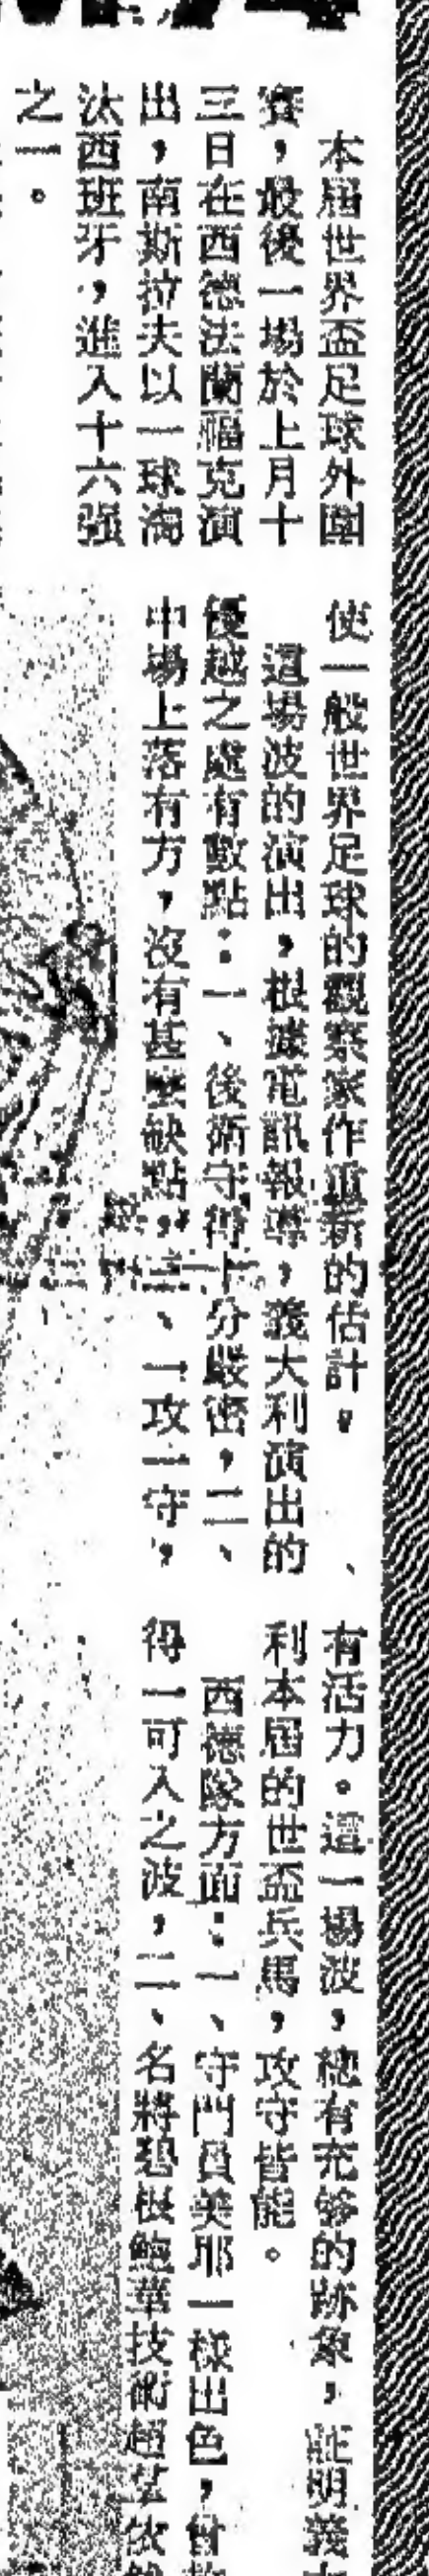 本屆世界盃足球外圍
賽，最後一場於上月十
三日在西德法蘭福克演
出，南斯拉夫以一球淘
汰西班牙，進入十六强
之一。
使一般世界足球的觀察家作重新的估計。
這場波的演出，根據電訊報導，義大利演出的
優越之處有數點：一、後衛守得十分嚴密，二、
中場上落有方，沒有甚麼缺點，三、一攻一守，
有活力。這一場波，總有充够的跡象，証明義大
利本屆的世盃兵馬，攻守皆能。
西德隊方面：一、守門員美耶一樣出色，曾救
得一可入之波，二、名將碧根鮑華技術超